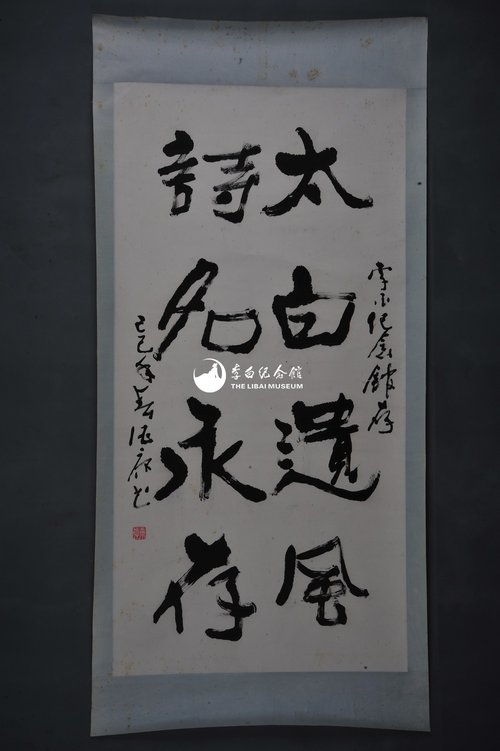 李白纪念馆存
太白遺風
詩名永存
己巳年春
李白纪念馆
THE LIBAI MUSEUM